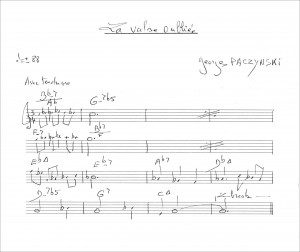 La valse oubliée
♩=88
georges PACZYNSKI
Avec tendresse
Bb-7/Ab G-7b5
E-7 Bb7/Ab
EbΔ Eb7 Ab7 DbΔ
D-7b5 G7 CΔ